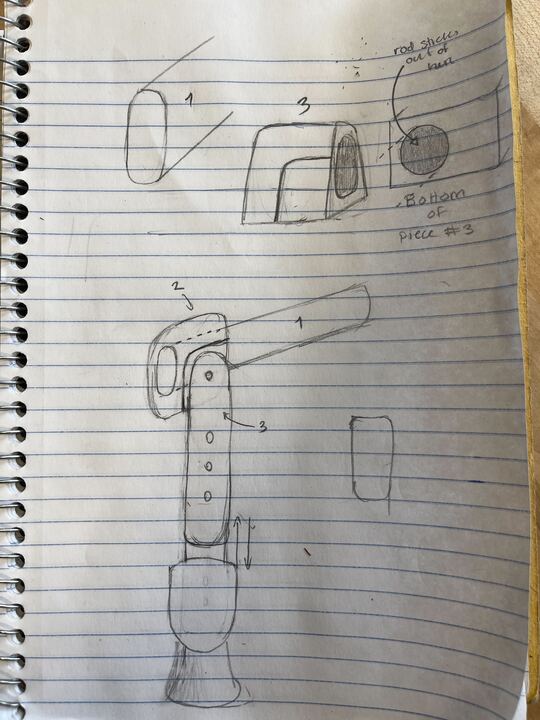 rod sticks
out of
here
1
3
Bottom
of
piece #3
2
1
3